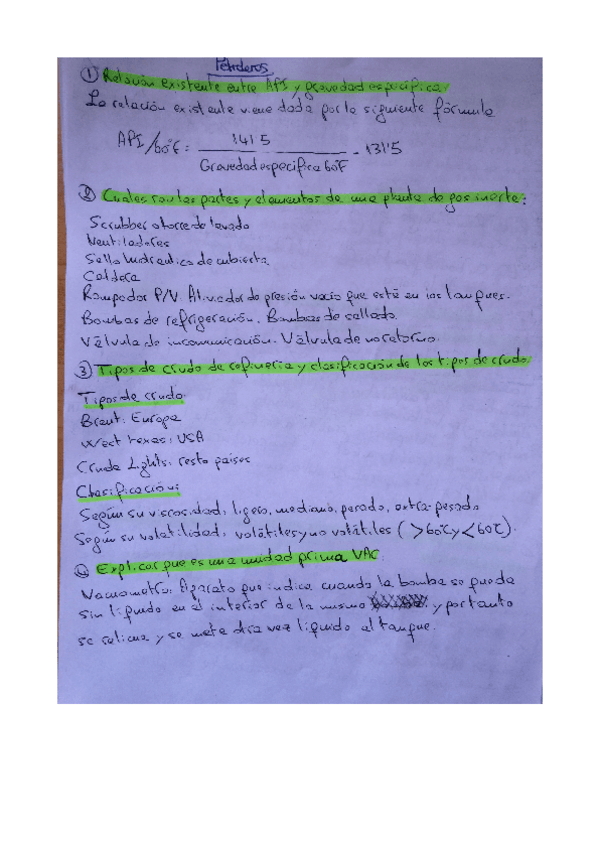 Petroleros
① Relación existente entre API y gravedad específica:
La relación existente viene dada por la siguiente fórmula
API/60°F = 141'5 / Gravedad específica 60°F - 131'5
② Cuales son las partes y elementos de una planta de gas inerte:
Scrubber o torre de lavado
Ventiladores
Sello hidraulico de cubierta
Caldera
Rompedor P/V. Aliviador de presión vacío que esté en los tanques.
Bombas de refrigeración. Bombas de sellado.
Válvula de incomunicación. Válvula de no retorno.
③ Tipos de crudo de refineria y clasificación de los tipos de crudo.
Tipos de crudo.
Brent: Europa
West texas: USA
Crude Lights: resto paises
Clasificación:
Según su viscosidad: ligero, mediano, pesado, extra-pesado
Según su volatilidad: volátiles y no volátiles ( >60°C y <60°C).
④ Explicar que es una unidad prima VAC
Vacuometro: Aparato que indica cuando la bomba se queda
sin liquido en el interior de la misma y por tanto
se relina y se mete otra vez liquido al tanque.